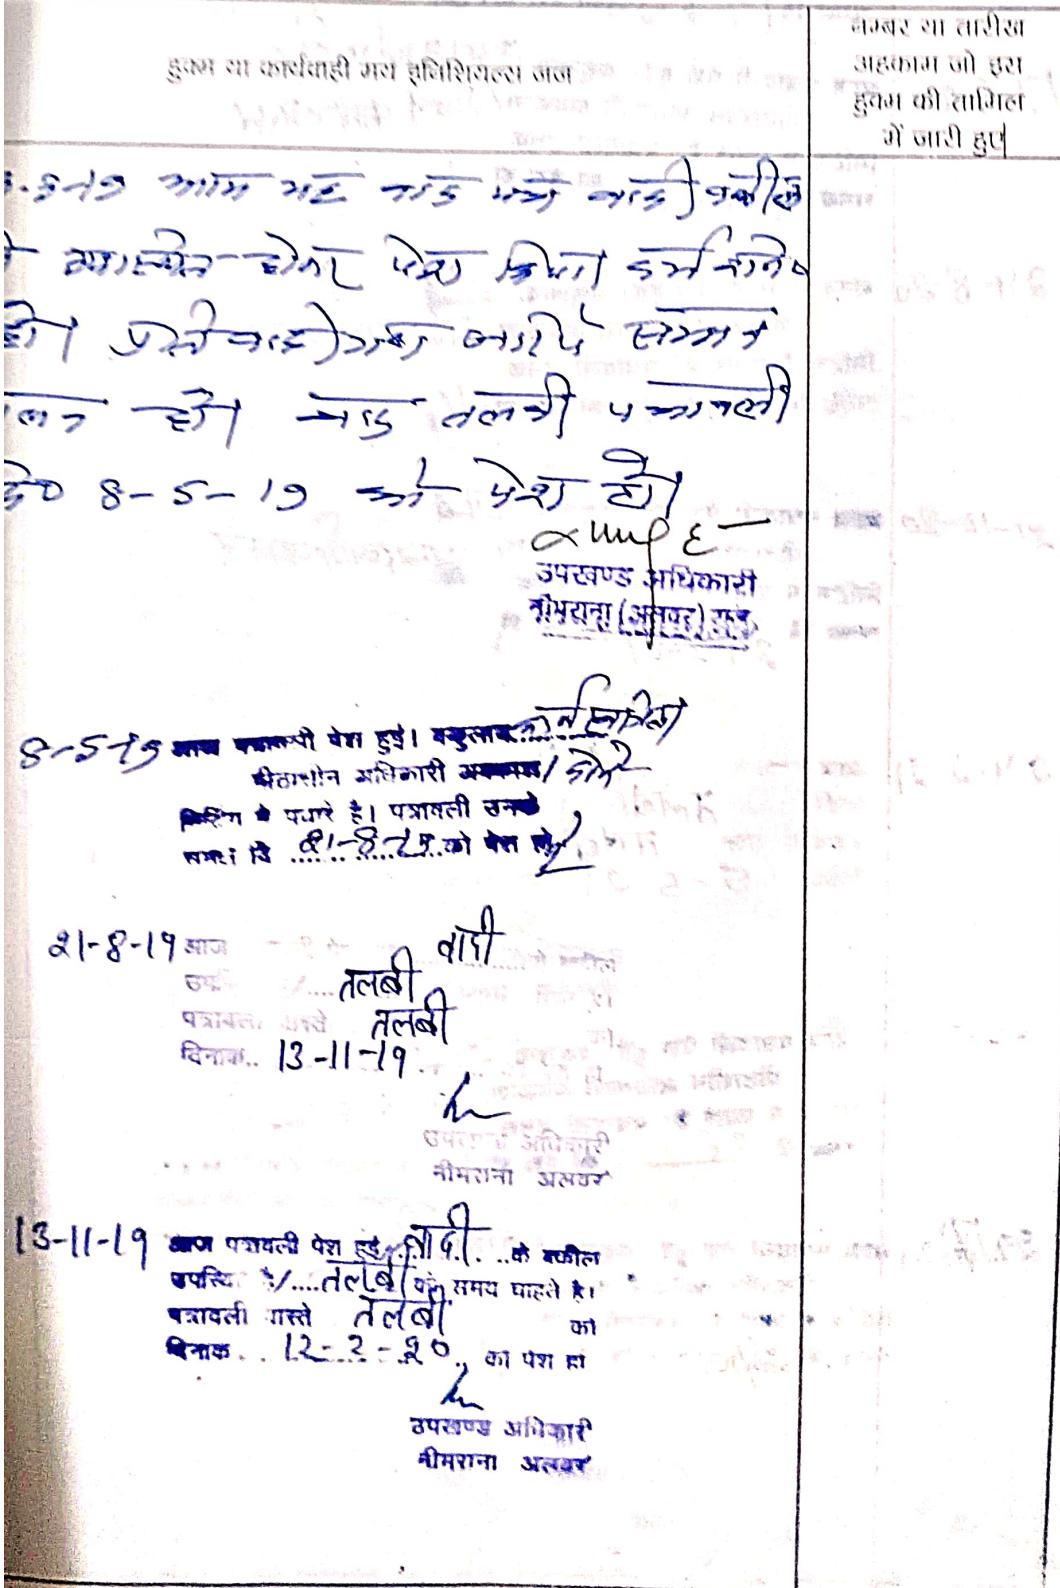 हुक्म या कार्यवाही मय इनिशियल्स जज
नम्बर या तारीख
अहकाम जो इस
हुक्म की तामिल
में जारी हुए
आज यह वाद पत्र वादी वकील
ने उपस्थित होकर पेश किया। दर्ज
हो। प्रतिवादीगण जरिये सम्मन
तलब हो। वाद तलबी पत्रावली
दि० 8-5-19 को पेश हो।
उपखण्ड अधिकारी
नीमराना (अलवर) राज.
8-5-19 आज पत्रावली पेश हुई।
पीठासीन अधिकारी अवकाश/
पधारे है। पत्रावली उनके
समक्ष दि 21-8-19 को पेश हो
21-8-19 आज वादी
तलबी
पत्रावली वास्ते तलबी
दिनांक.. 13-11-19
उपखण्ड अधिकारी
नीमराना अलवर
13-11-19 आज पत्रावली पेश हुई वादी के वकील
उपस्थित है/....तलबी समय चाहते है।
पत्रावली वास्ते तलबी को
दिनांक.. 12-2-20 को पेश हो
उपखण्ड अधिकारी
नीमराना अलवर